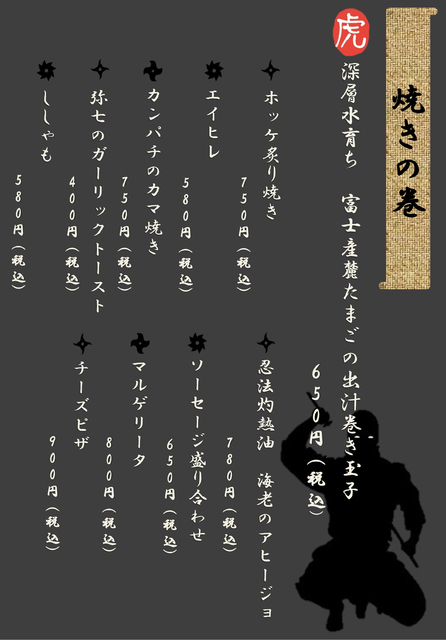 焼きの巻
虎
深層水育ち 富士産麓たまごの出汁巻き玉子
650円(税込)
ホッケ炙り焼き
750円(税込)
エイヒレ
580円(税込)
カンパチのカマ焼き
750円(税込)
弥七のガーリックトースト
400円(税込)
ししゃも
580円(税込)
忍法灼熱油 海老のアヒージョ
780円(税込)
ソーセージ盛り合わせ
650円(税込)
マルゲリータ
800円(税込)
チーズピザ
900円(税込)